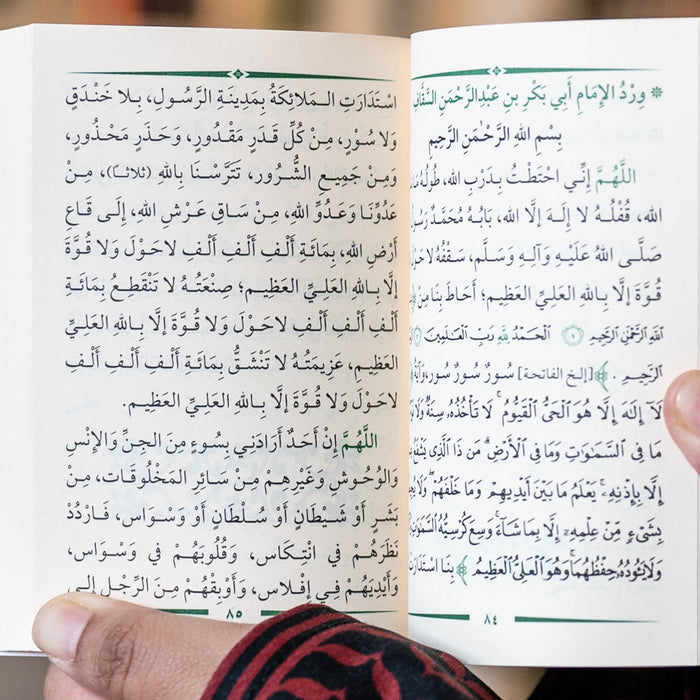 * وِرْدُ الإِمَامِ أَبِي بَكْرِ بنِ عَبْدِالرَّحْمَنِ السَّقَّاف
بِسْمِ اللهِ الرَّحْمٰنِ الرَّحِيمِ
اللَّهُمَّ إِنِّي احْتَطْتُ بِدَرْبِ الله، طُولُهُ
الله، قُفْلُهُ لا إِلَهَ إِلَّا الله، بَابُهُ مُحَمَّدٌ رَسُولُ
صَلَّى اللهُ عَلَيْهِ وَآلِهِ وَسَلَّم، سَقْفُهُ لا حَوْلَ
قُوَّةَ إِلَّا بِاللهِ العَلِيِّ العَظِيمِ؛ أَحَاطَ بِنَا مِنْ
ٱللَّهِ ٱلرَّحْمَٰنِ ٱلرَّحِيمِ ١ ٱلْحَمْدُ لِلَّهِ رَبِّ ٱلْعَٰلَمِينَ
ٱلرَّحِيمِ . ﴾ [إلخ الفاتحة] سُورٌ سُورٌ سُورٌ، وَآيَةُ
لَآ إِلَٰهَ إِلَّا هُوَ ٱلْحَىُّ ٱلْقَيُّومُ ۚ لَا تَأْخُذُهُۥ سِنَةٌ وَلَا
مَا فِى ٱلسَّمَٰوَٰتِ وَمَا فِى ٱلْأَرْضِ ۗ مَن ذَا ٱلَّذِى يَشْفَعُ
إِلَّا بِإِذْنِهِۦ ۚ يَعْلَمُ مَا بَيْنَ أَيْدِيهِمْ وَمَا خَلْفَهُمْ ۖ وَلَا
بِشَىْءٍ مِّنْ عِلْمِهِۦٓ إِلَّا بِمَا شَآءَ ۚ وَسِعَ كُرْسِيُّهُ ٱلسَّمَٰوَٰتِ
وَلَا يَـُٔودُهُۥ حِفْظُهُمَا ۚ وَهُوَ ٱلْعَلِىُّ ٱلْعَظِيمُ ﴾ بِنَا اسْتَدَارَتْ
٨٤
اسْتَدَارَتِ المَلائِكَةُ بِمَدِينَةِ الرَّسُولِ، بِلا خَنْدَقٍ
وَلا سُوْرٍ، مِنْ كُلِّ قَدَرٍ مَقْدُورٍ، وَحَذَرٍ مَحْذُورٍ،
وَمِنْ جَمِيعِ الشُّرُور، تَتَرَّسْنَا بِاللهِ (ثلاثاً)، مِنْ
عَدُوِّنَا وَعَدُوِّ اللهِ، مِنْ سَاقِ عَرْشِ اللهِ، إِلَى قَاعِ
أَرْضِ اللهِ، بِمَائَةِ أَلْفِ أَلْفِ أَلْفِ لا حَوْلَ وَلا قُوَّةَ
إِلَّا بِاللهِ العَلِيِّ العَظِيمِ؛ صِنْعَتُهُ لا تَنْقَطِعُ بِمَائَةِ
أَلْفِ أَلْفِ أَلْفِ لا حَوْلَ وَلا قُوَّةَ إِلَّا بِاللهِ العَلِيِّ
العَظِيمِ، عَزِيمَتُهُ لا تَنْشَقُّ بِمَائَةِ أَلْفِ أَلْفِ أَلْفِ
لا حَوْلَ وَلا قُوَّةَ إِلَّا بِاللهِ العَلِيِّ العَظِيمِ.
اللَّهُمَّ إِنْ أَحَدٌ أَرَادَنِي بِسُوءٍ مِنَ الجِنِّ وَالإِنْسِ
وَالوُحُوشِ وَغَيْرِهِمْ مِنْ سَائِرِ المَخْلُوقَاتِ، مِنْ
بَشَرٍ أَوْ شَيْطَانٍ أَوْ سُلْطَانٍ أَوْ وَسْوَاس، فَارْدُدْ
نَظَرَهُمْ في انْتِكَاس، وَقُلُوبَهُمْ في وَسْوَاس،
وَأَيْدِيَهُمْ فِي إِفْلاس، وَأَوْبِقْهُمْ مِنَ الرِّجْلِ إِلى
٨٥